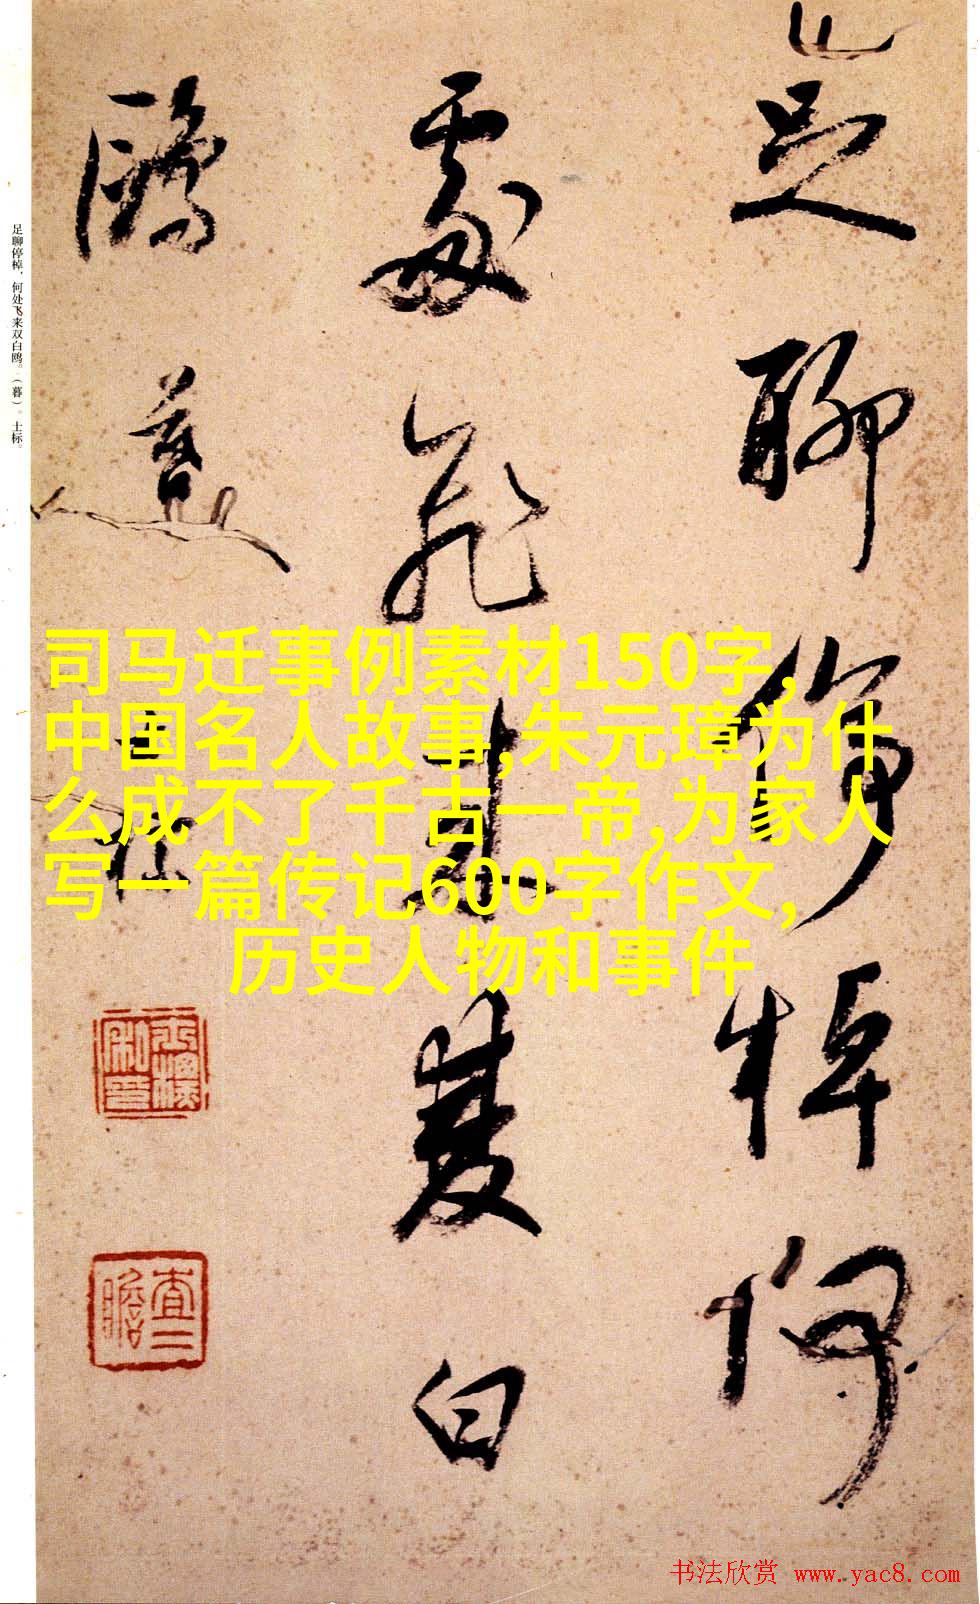 足聊停棹何
處飛來雙白
鷗 暮
士标
足聊停棹，何处飞来双白鸥。（暮）。士标。
司马迁事例素材150字,
中国名人故事,朱元璋为什
么成不了千古一帝,为家人
写一篇传记600字作文,
历史人物和事件
查二
瞻
书法欣赏 www.yac8.com